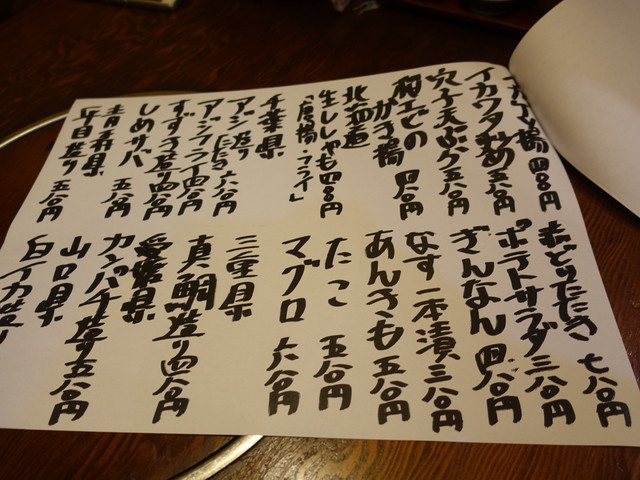 イカワタ炒め 五八〇円
穴子天ぷら 五八〇円
桜エビの
かき揚 四八〇円
北海道
生ししゃも 四八〇円
「唐揚・フライ」
千葉県
アジ造り
たたき 六八〇円
アジフライ 四八〇円
すずき造り 四八〇円
しめサバ 五八〇円
青森県
平目造り 五八〇円
赤どりたたき 七八〇円
ポテトサラダ 三八〇円
ぎんなん 四八〇円
なす一本漬 三八〇円
あんきも 五八〇円
たこ 五八〇円
マグロ 六八〇円
三重県
真鯛造り 四八〇円
愛媛県
カンパチ造り 五八〇円
山口県
白イカ造り